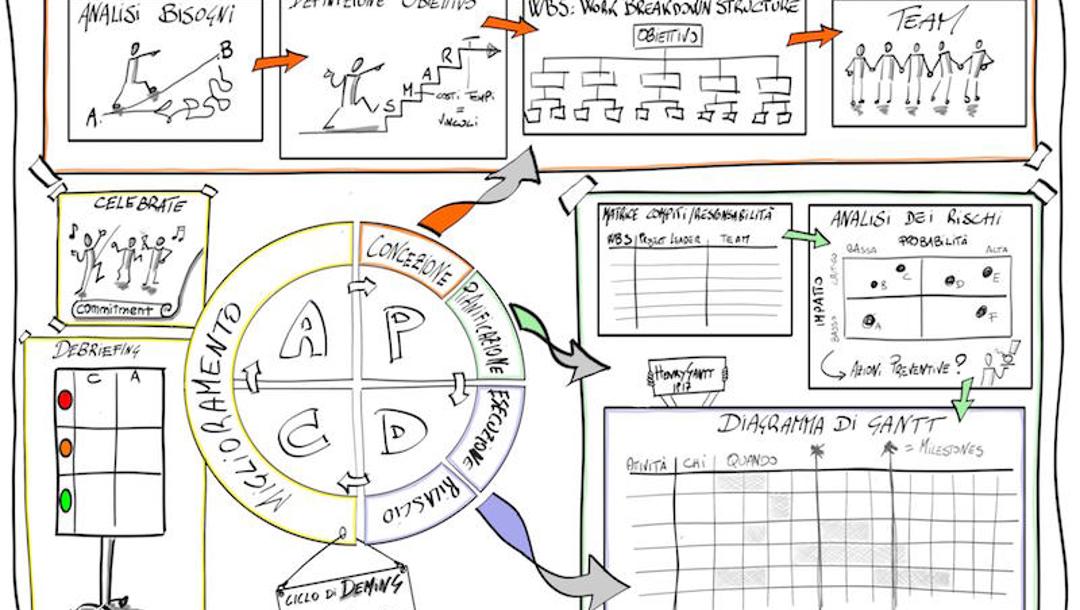 ANALISI BISOGNI
A.
B
DEFINIZIONE OBIETTIVO
S
M
A
R
T
COSTI TEMPI
=
VINCOLI
WBS: WORK BREAKDOWN STRUCTURE
OBIETTIVO
TEAM
CELEBRATE
commitment
DEBRIEFING
C A
CONCEZIONE
PIANIFICAZIONE
ESECUZIONE
RILASCIO
MIGLIORAMENTO
A P
C D
CICLO DI DEMING
MATRICE COMPITI/RESPONSABILITÀ
WBS PROJECT LEADER TEAM
ANALISI DEI RISCHI
PROBABILITÀ
BASSA ALTA
IMPATTO
CRITICO
BASSO
A
B
C
D
E
F
AZIONI PREVENTIVE?
HENRY GANTT
1917
DIAGRAMMA DI GANTT
= MILESTONES
ATIVITÀ CHI QUANDO